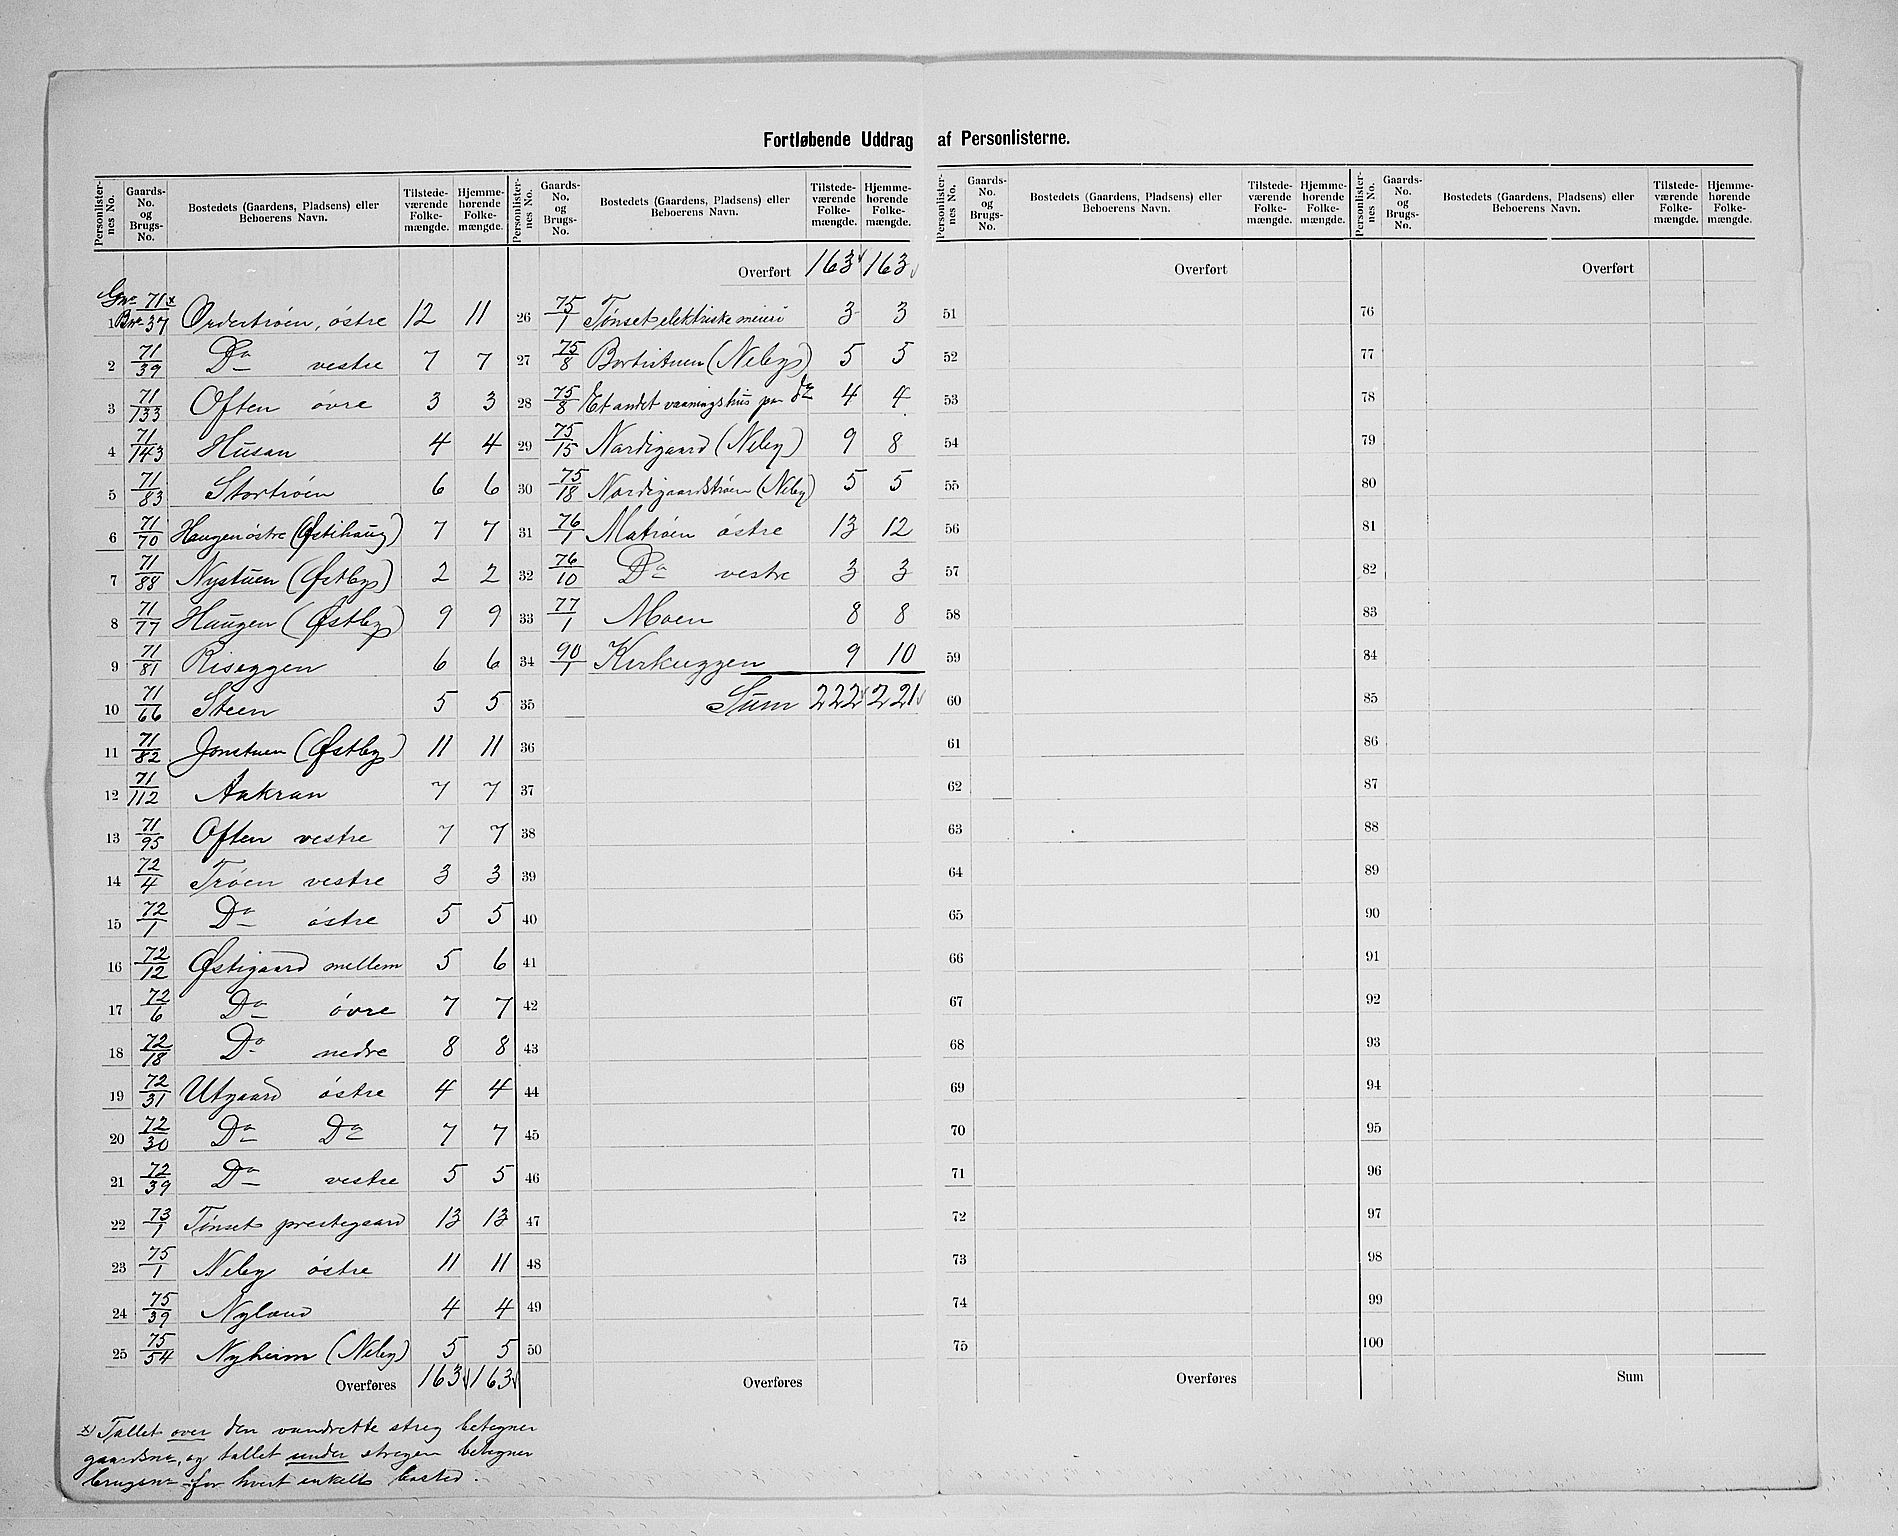 Fortløbende Uddrag af Personlisterne.
Personlisternes No. | Gaards-No. og Brugs-No. | Bostedets (Gaardens, Pladsens) eller Beboerens Navn. | Tilstedeværende Folkemængde. | Hjemmehørende Folkemængde.
Gno 71 x
1 Bno 37 Ordertrøen, östre 12 11
2 71/39 Do vestre 7 7
3 71/133 Often øvre 3 3
4 71/143 Husan 4 4
5 71/83 Stortrøen 6 6
6 71/70 Haugen östre (Østihaug) 7 7
7 71/88 Nystuen (Østbys) 2 2
8 71/77 Haugen (Østby) 9 9
9 71/81 Riseggen 6 6
10 71/66 Steen 5 5
11 71/82 Jonstuen (Østby) 11 11
12 71/112 Aakran 7 7
13 71/95 Often vestre 7 7
14 72/4 Trøen vestre 3 3
15 72/1 Do östre 5 5
16 72/12 Østigaard mellem 5 6
17 72/6 Do övre 7 7
18 72/18 Do nedre 8 8
19 72/31 Utgaard östre 4 4
20 72/30 Do Do 7 7
21 72/39 Do vestre 5 5
22 73/1 Tönset prestegaard 13 13
23 75/1 Neby östre 11 11
24 75/39 Nyland 4 4
25 75/54 Nyheim (Neby) 5 5
Overføres 163 163
x) Tallet over den vandrette streg betegner
gaardsno, og tallet under stregen betegner
brugsno for hvert enkelt bosted.
Personlisternes No. | Gaards-No. og Brugs-No. | Bostedets (Gaardens, Pladsens) eller Beboerens Navn. | Tilstedeværende Folkemængde. | Hjemmehørende Folkemængde.
Overført 163 163
26 75/1 Tønset elektriske meieri 3 3
27 75/8 Bortistuen (Nebys) 5 5
28 75/8 Et andet vaaningshus paa do 4 4
29 75/15 Nordigaard (Neby) 9 8
30 75/18 Nordigaardstrøen (Neby) 5 5
31 76/1 Matrøen östre 13 12
32 76/10 Do vestre 3 3
33 77/1 Moen 8 8
34 90/1 Kirkeggen 9 10
35 Sum 222 221
36
37
38
39
40
41
42
43
44
45
46
47
48
49
50
Overføres
Personlisternes No. | Gaards-No. og Brugs-No. | Bostedets (Gaardens, Pladsens) eller Beboerens Navn. | Tilstedeværende Folkemængde. | Hjemmehørende Folkemængde.
Overført
51
52
53
54
55
56
57
58
59
60
61
62
63
64
65
66
67
68
69
70
71
72
73
74
75
Overføres
Personlisternes No. | Gaards-No. og Brugs-No. | Bostedets (Gaardens, Pladsens) eller Beboerens Navn. | Tilstedeværende Folkemængde. | Hjemmehørende Folkemængde.
Overført
76
77
78
79
80
81
82
83
84
85
86
87
88
89
90
91
92
93
94
95
96
97
98
99
100
Sum